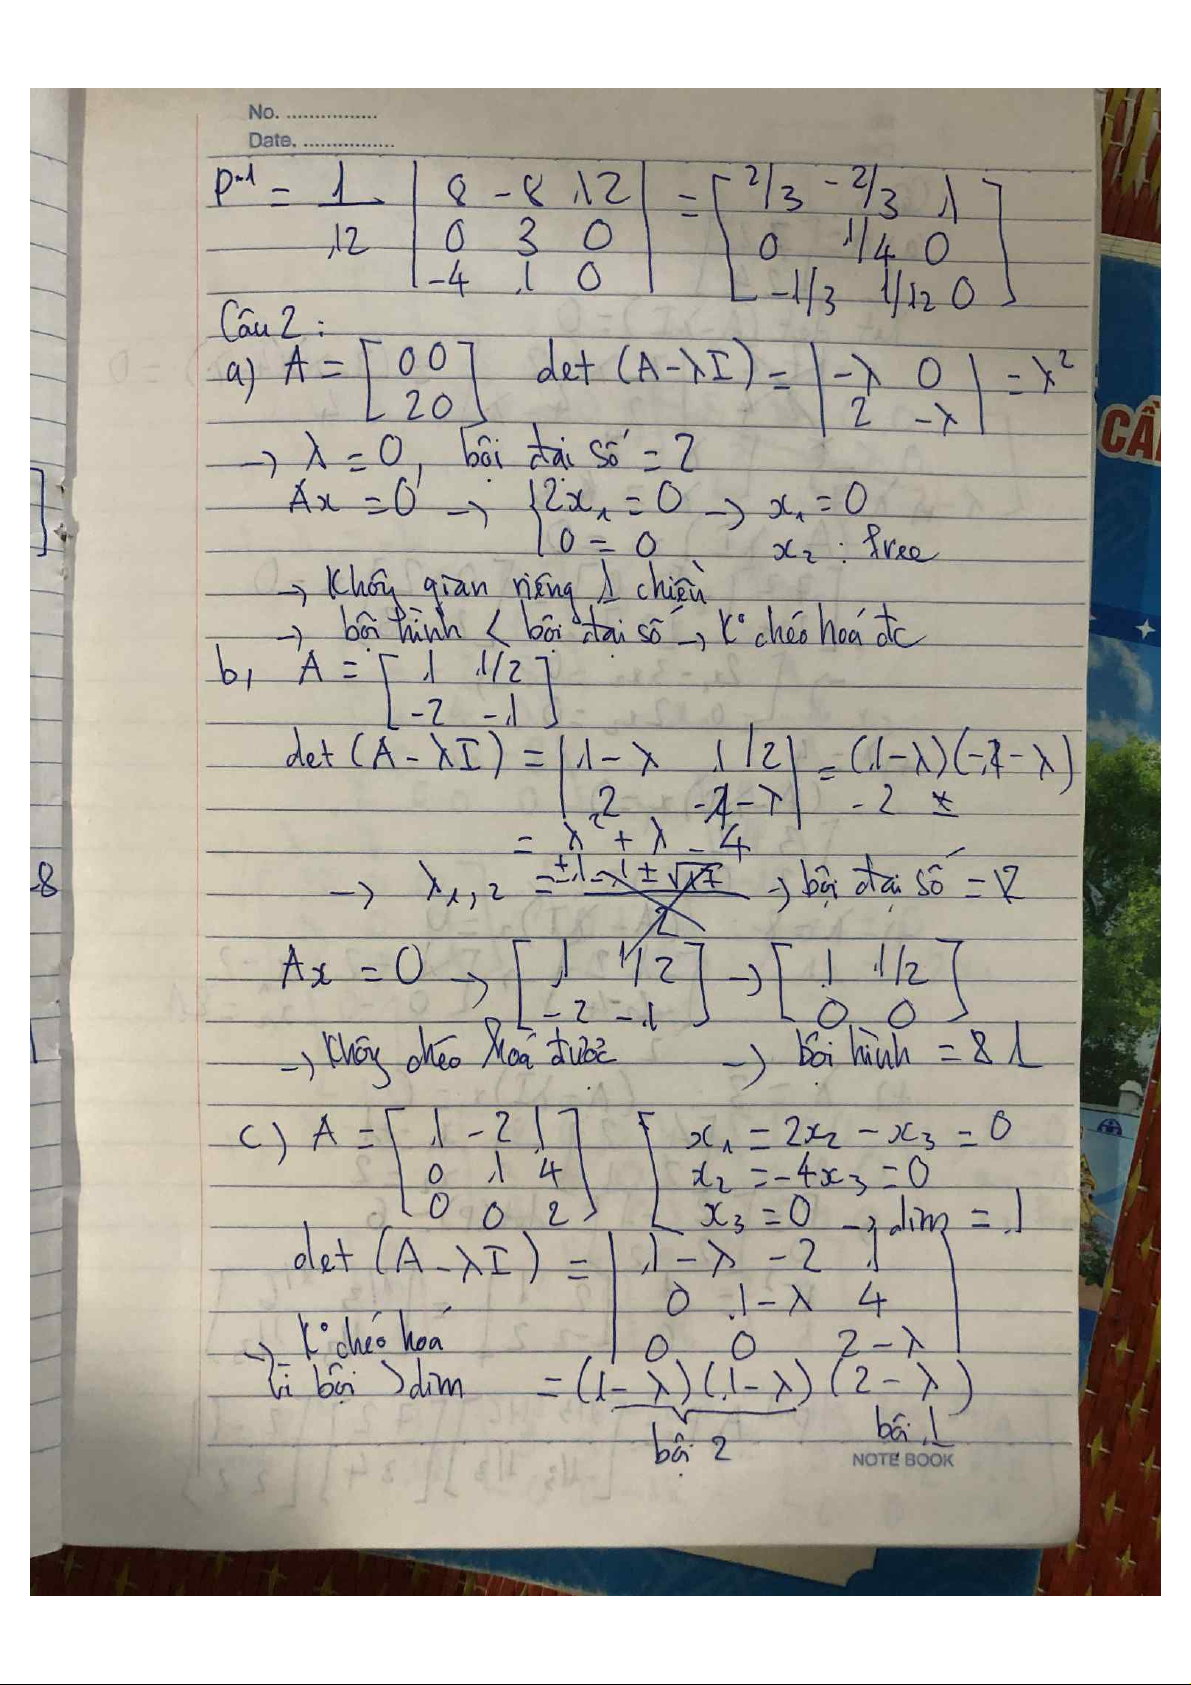 No. ................
Date. ................
P⁻¹ = 1/12 | 8 -8 12 | = [ 2/3 -2/3 1
0 3 0 | 0 1/4 0
-4 1 0 | -1/3 1/12 0 ]
Câu 2 :
a) A = [ 0 0 det (A-λI) = | -λ 0 | = λ²
2 0 ] 2 -λ |
→ λ = 0, bội đại số = 2
Ax = 0 → { 2x₁ = 0 → x₁ = 0
0 = 0 x₂ : free
→ Không gian riêng 1 chiều
→ bội hình < bội đại số → K° chéo hoá đc
b, A = [ 1 1/2
-2 -1 ]
det (A - λI) = | 1-λ 1/2 | = (1-λ)(-1-λ)
2 -1-λ | - 2
= λ² + λ - 4
→ λ₁,₂ = → bội đại số = 2
Ax = 0 → [ 1 1/2 ] → [ 1 1/2 ]
-2 -1 0 0
→ Không chéo hoá được → bội hình = 1
c) A = [ 1 -2 1 ] [ x₁ = 2x₂ - x₃ = 0
0 1 4 x₂ = -4x₃ = 0
0 0 2 x₃ = 0 → dim = 1
det (A-λI) = | 1-λ -2 1 |
0 1-λ 4
→ K° chéo hoá 0 0 2-λ
vì bội > dim = (1-λ)(1-λ)(2-λ)
bội 2 bội 1
NOTE BOOK
CẨ
-8